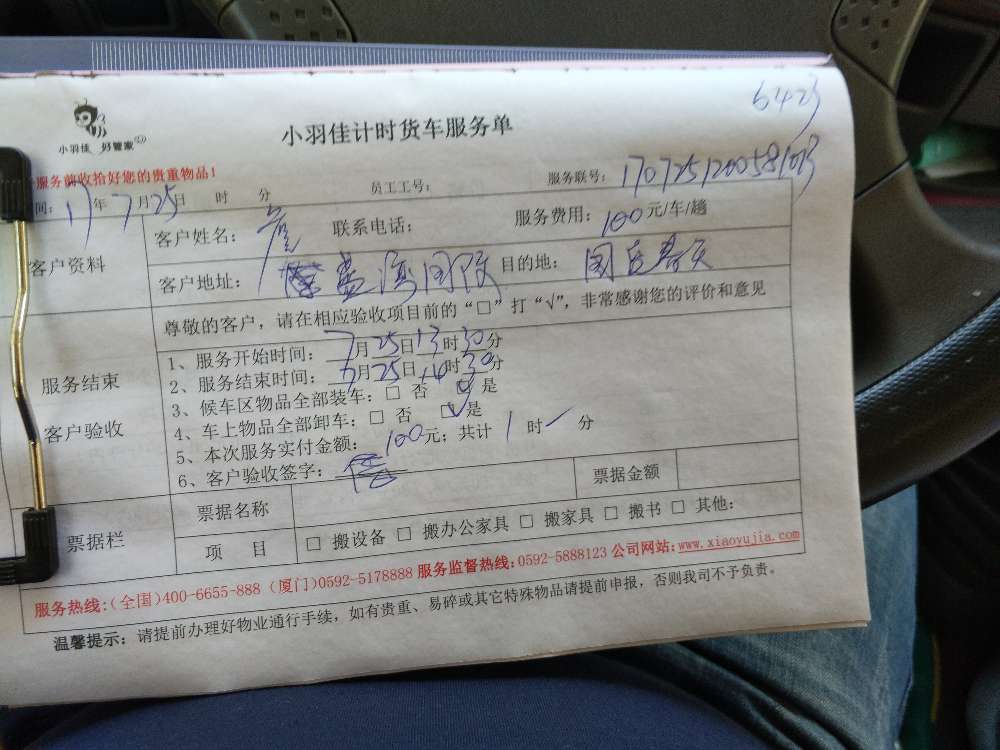 6423
小羽佳 好管家
小羽佳计时货车服务单
服务前收拾好您的贵重物品！
间： 17年7月25日 时 分 员工工号： 服务联号：
客户资料
客户姓名： 联系电话： 服务费用：100元/车/趟
客户地址： 目的地： 国贸春天
尊敬的客户，请在相应验收项目前的“□”打“√”，非常感谢您的评价和意见
服务结束
客户验收
1、服务开始时间：7月25日13时30分
2、服务结束时间：7月25日14时30分
3、候车区物品全部装车：□ 否 ☑ 是
4、车上物品全部卸车：□ 否 ☑ 是
5、本次服务实付金额：100元；共计1时 分
6、客户验收签字：
票据栏
票据名称 票据金额
项 目 □ 搬设备 □ 搬办公家具 □ 搬家具 □ 搬书 □ 其他：
服务热线：(全国)400-6655-888 (厦门)0592-5178888 服务监督热线：0592-5888123 公司网站：www.xiaoyujia.com
温馨提示：请提前办理好物业通行手续，如有贵重、易碎或其它特殊物品请提前申报，否则我司不予负责。